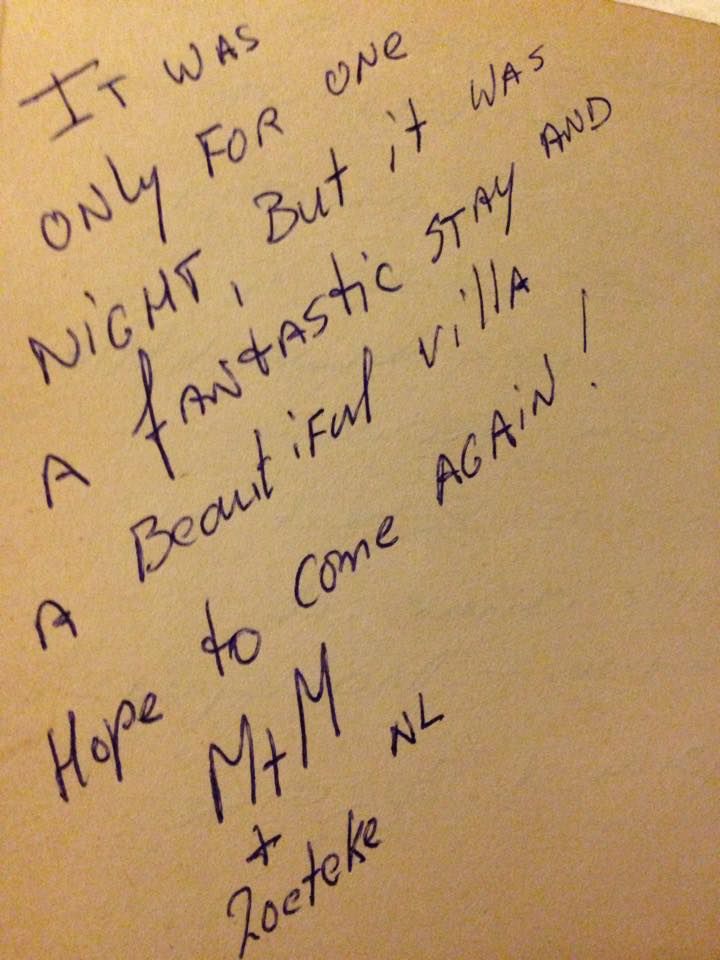 It was
only for one
night, But it was
A fantastic stay and
A Beautiful villa
Hope to come again!
M+M NL
+
Zoeteke